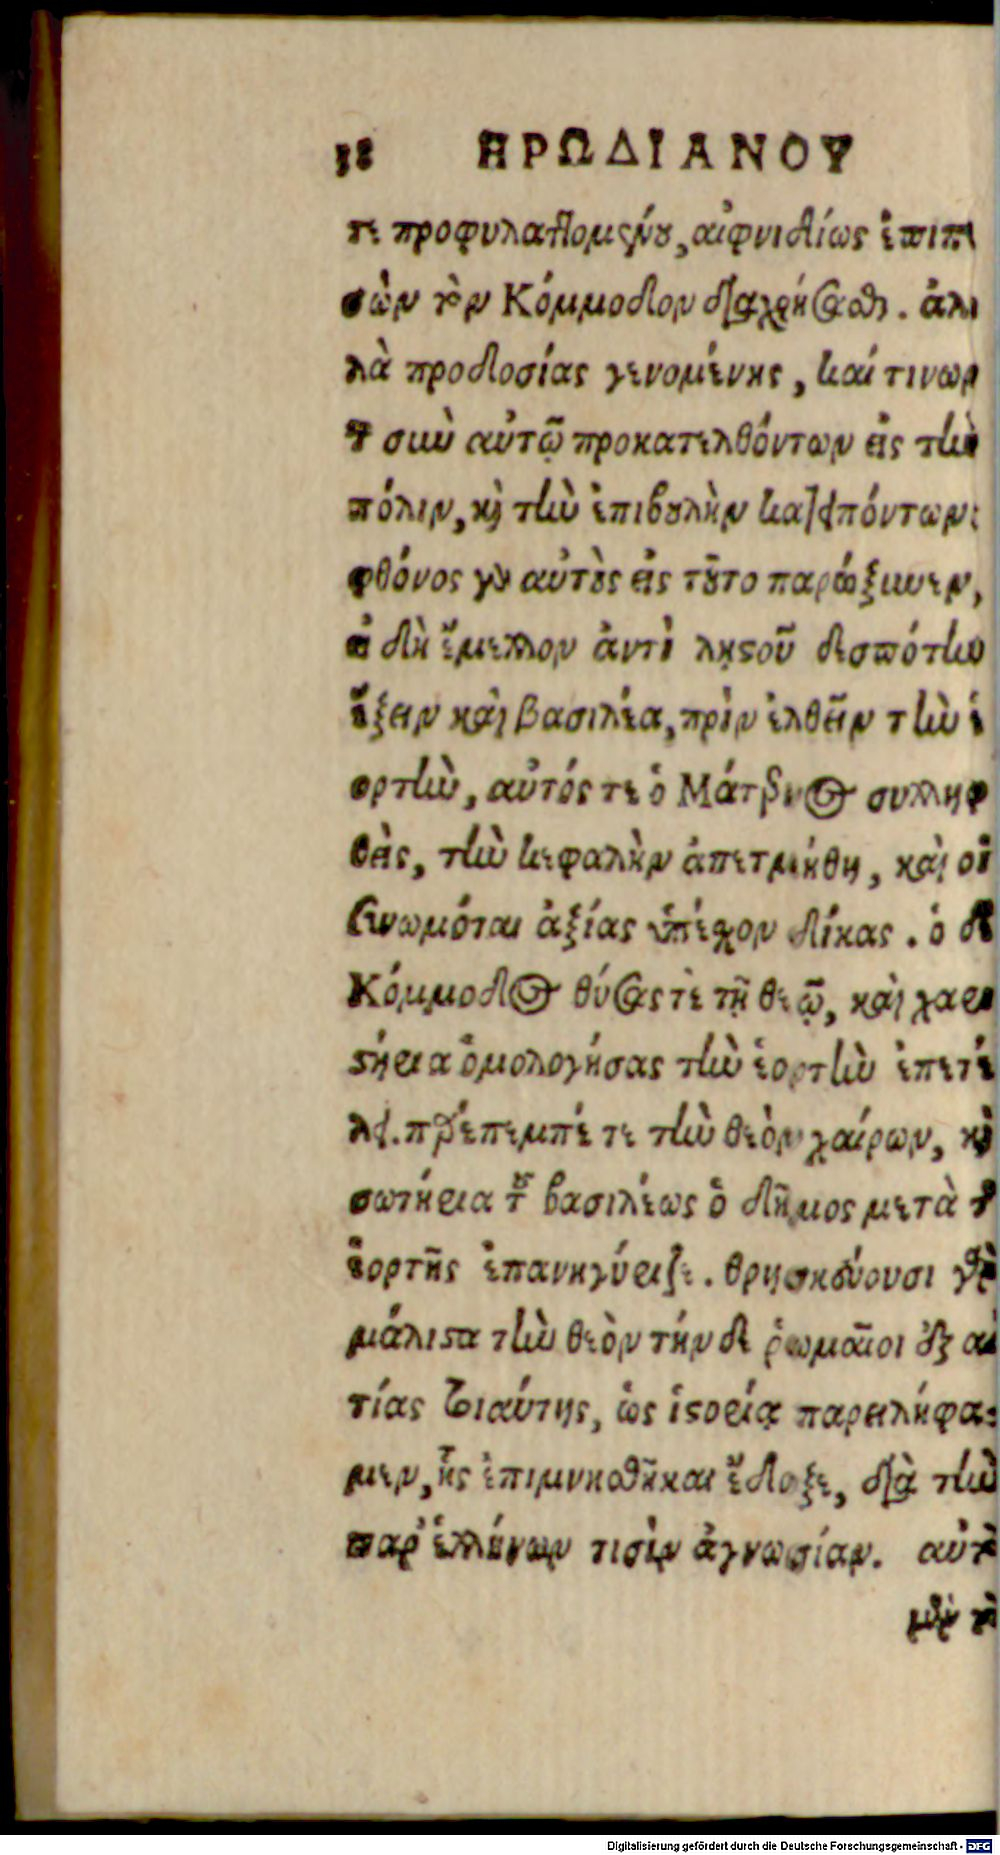 38 ΗΡΩΔΙΑΝΟΥ
τε προφυλαττομένου, αἰφνιδίως ἐπιπε
σὼν τὸν Κόμμοδον διαχρήσασθαι. ἀλ
λὰ προδοσίας γενομένης, καί τινων
τῶν σὺν αὐτῷ προκατελθόντων εἰς τὴν
πόλιν, καὶ τὴν ἐπιβουλὴν κατειπόντων:
φθόνος γὰρ αὐτοὺς εἰς τοῦτο παρώξυνεν,
εἰ δὴ ἔμελλον ἀντὶ λῃστοῦ δεσπότην
ἕξειν καὶ βασιλέα, πρὶν ἐλθεῖν τὴν ἑ
ορτὴν, αὐτός τε ὁ Μάτερνος συλληφ
θεὶς, τὴν κεφαλὴν ἀπετμήθη, καὶ οἱ
συνωμόται ἀξίας ὑπέσχον δίκας. ὁ δὲ
Κόμμοδος θύσας τὲ τῇ θεῷ, καὶ χαρι
στήρια ὁμολογήσας τὴν ἑορτὴν ἐπετέ
λει. προέπεμπέ τε τὴν θεὸν χαίρων, καὶ
σωτήρια τοῦ βασιλέως ὁ δῆμος μετὰ τῆς
ἑορτῆς ἐπανηγύριζε. θρησκεύουσι δὲ
μάλιστα τὴν θεὸν τήνδε ῥωμαῖοι ἐξ αἰ
τίας τοιαύτης, ὡς ἱστορίᾳ παρειλήφα-
μεν, ἧς ἐπιμνησθῆναι ἔδοξε, διὰ τὴν
παρ' ἑλλήνων τισὶν ἀγνωσίαν. αὐτὸ
μὲν τὸ
Digitalisierung gefördert durch die Deutsche Forschungsgemeinschaft - DFG